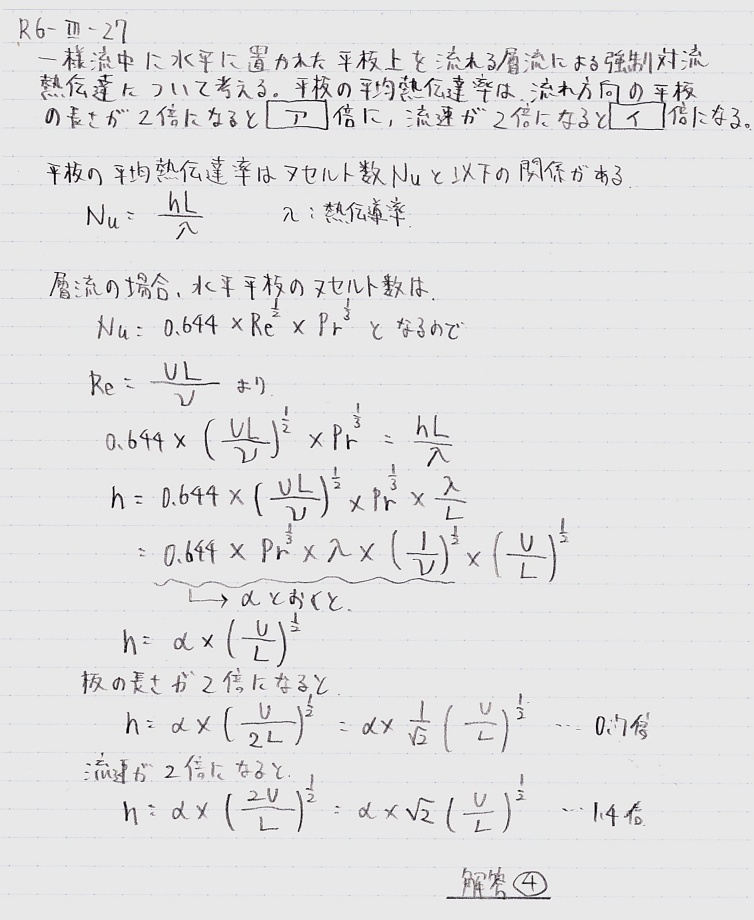 R6-Ⅲ-27
一様流中に水平に置かれた平板上を流れる層流による強制対流
熱伝達について考える。平板の平均熱伝達率は、流れ方向の平板
の長さが2倍になると ア 倍に、流速が2倍になると イ 倍になる。
平板の平均熱伝達率はヌセルト数Nuと以下の関係がある
Nu = hL/λ λ:熱伝導率
層流の場合、水平平板のヌセルト数は、
Nu = 0.644 × Re^(1/2) × Pr^(1/3) となるので
Re = UL/ν より
0.644 × (UL/ν)^(1/2) × Pr^(1/3) = hL/λ
h = 0.644 × (UL/ν)^(1/2) × Pr^(1/3) × λ/L
= 0.644 × Pr^(1/3) × λ × (1/ν)^(1/2) × (U/L)^(1/2)
→ αとおくと、
h = α × (U/L)^(1/2)
板の長さが2倍になると、
h = α × (U/2L)^(1/2) = α × 1/√2 (U/L)^(1/2) … 0.7倍
流速が2倍になると、
h = α × (2U/L)^(1/2) = α × √2 (U/L)^(1/2) … 1.4倍
解答④